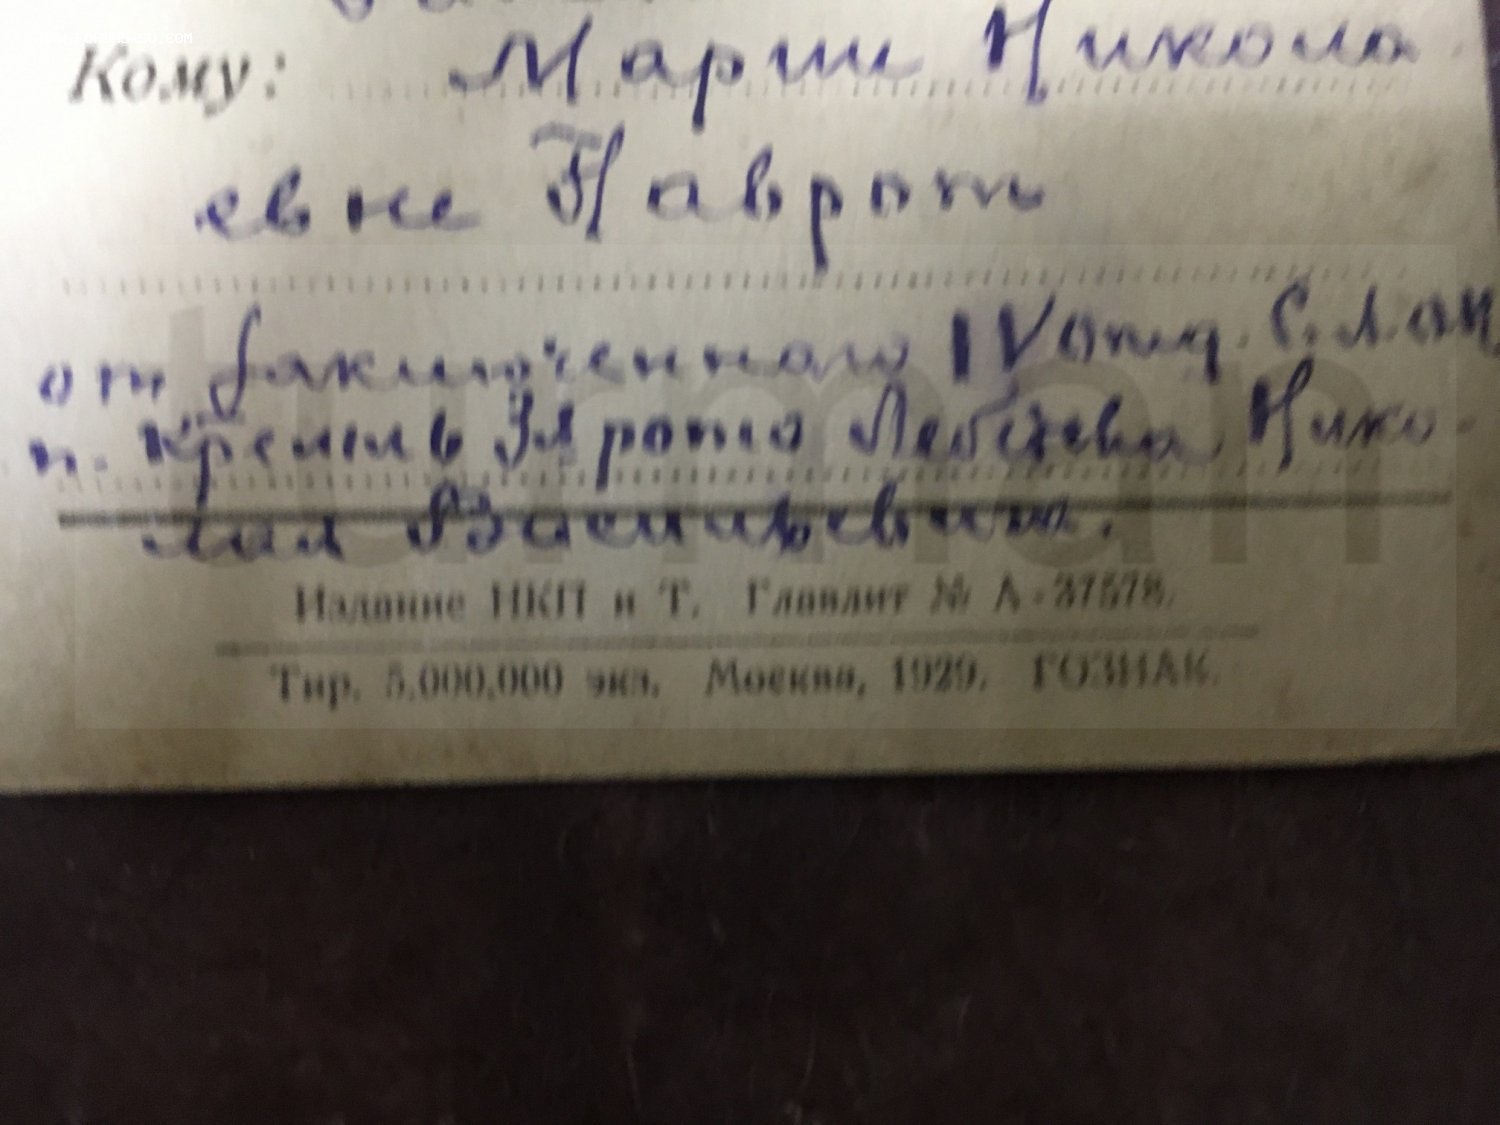 Кому: Марии Никола
евне Наврот
от заключенного IV отд. С.Л.ОН
п. Кремль 3я рота Лебедева Нико-
лая Васильевича.
Издание НКП и Т. Главлит № А-37578.
Тир. 5,000,000 экз. Москва, 1929. ГОЗНАК.